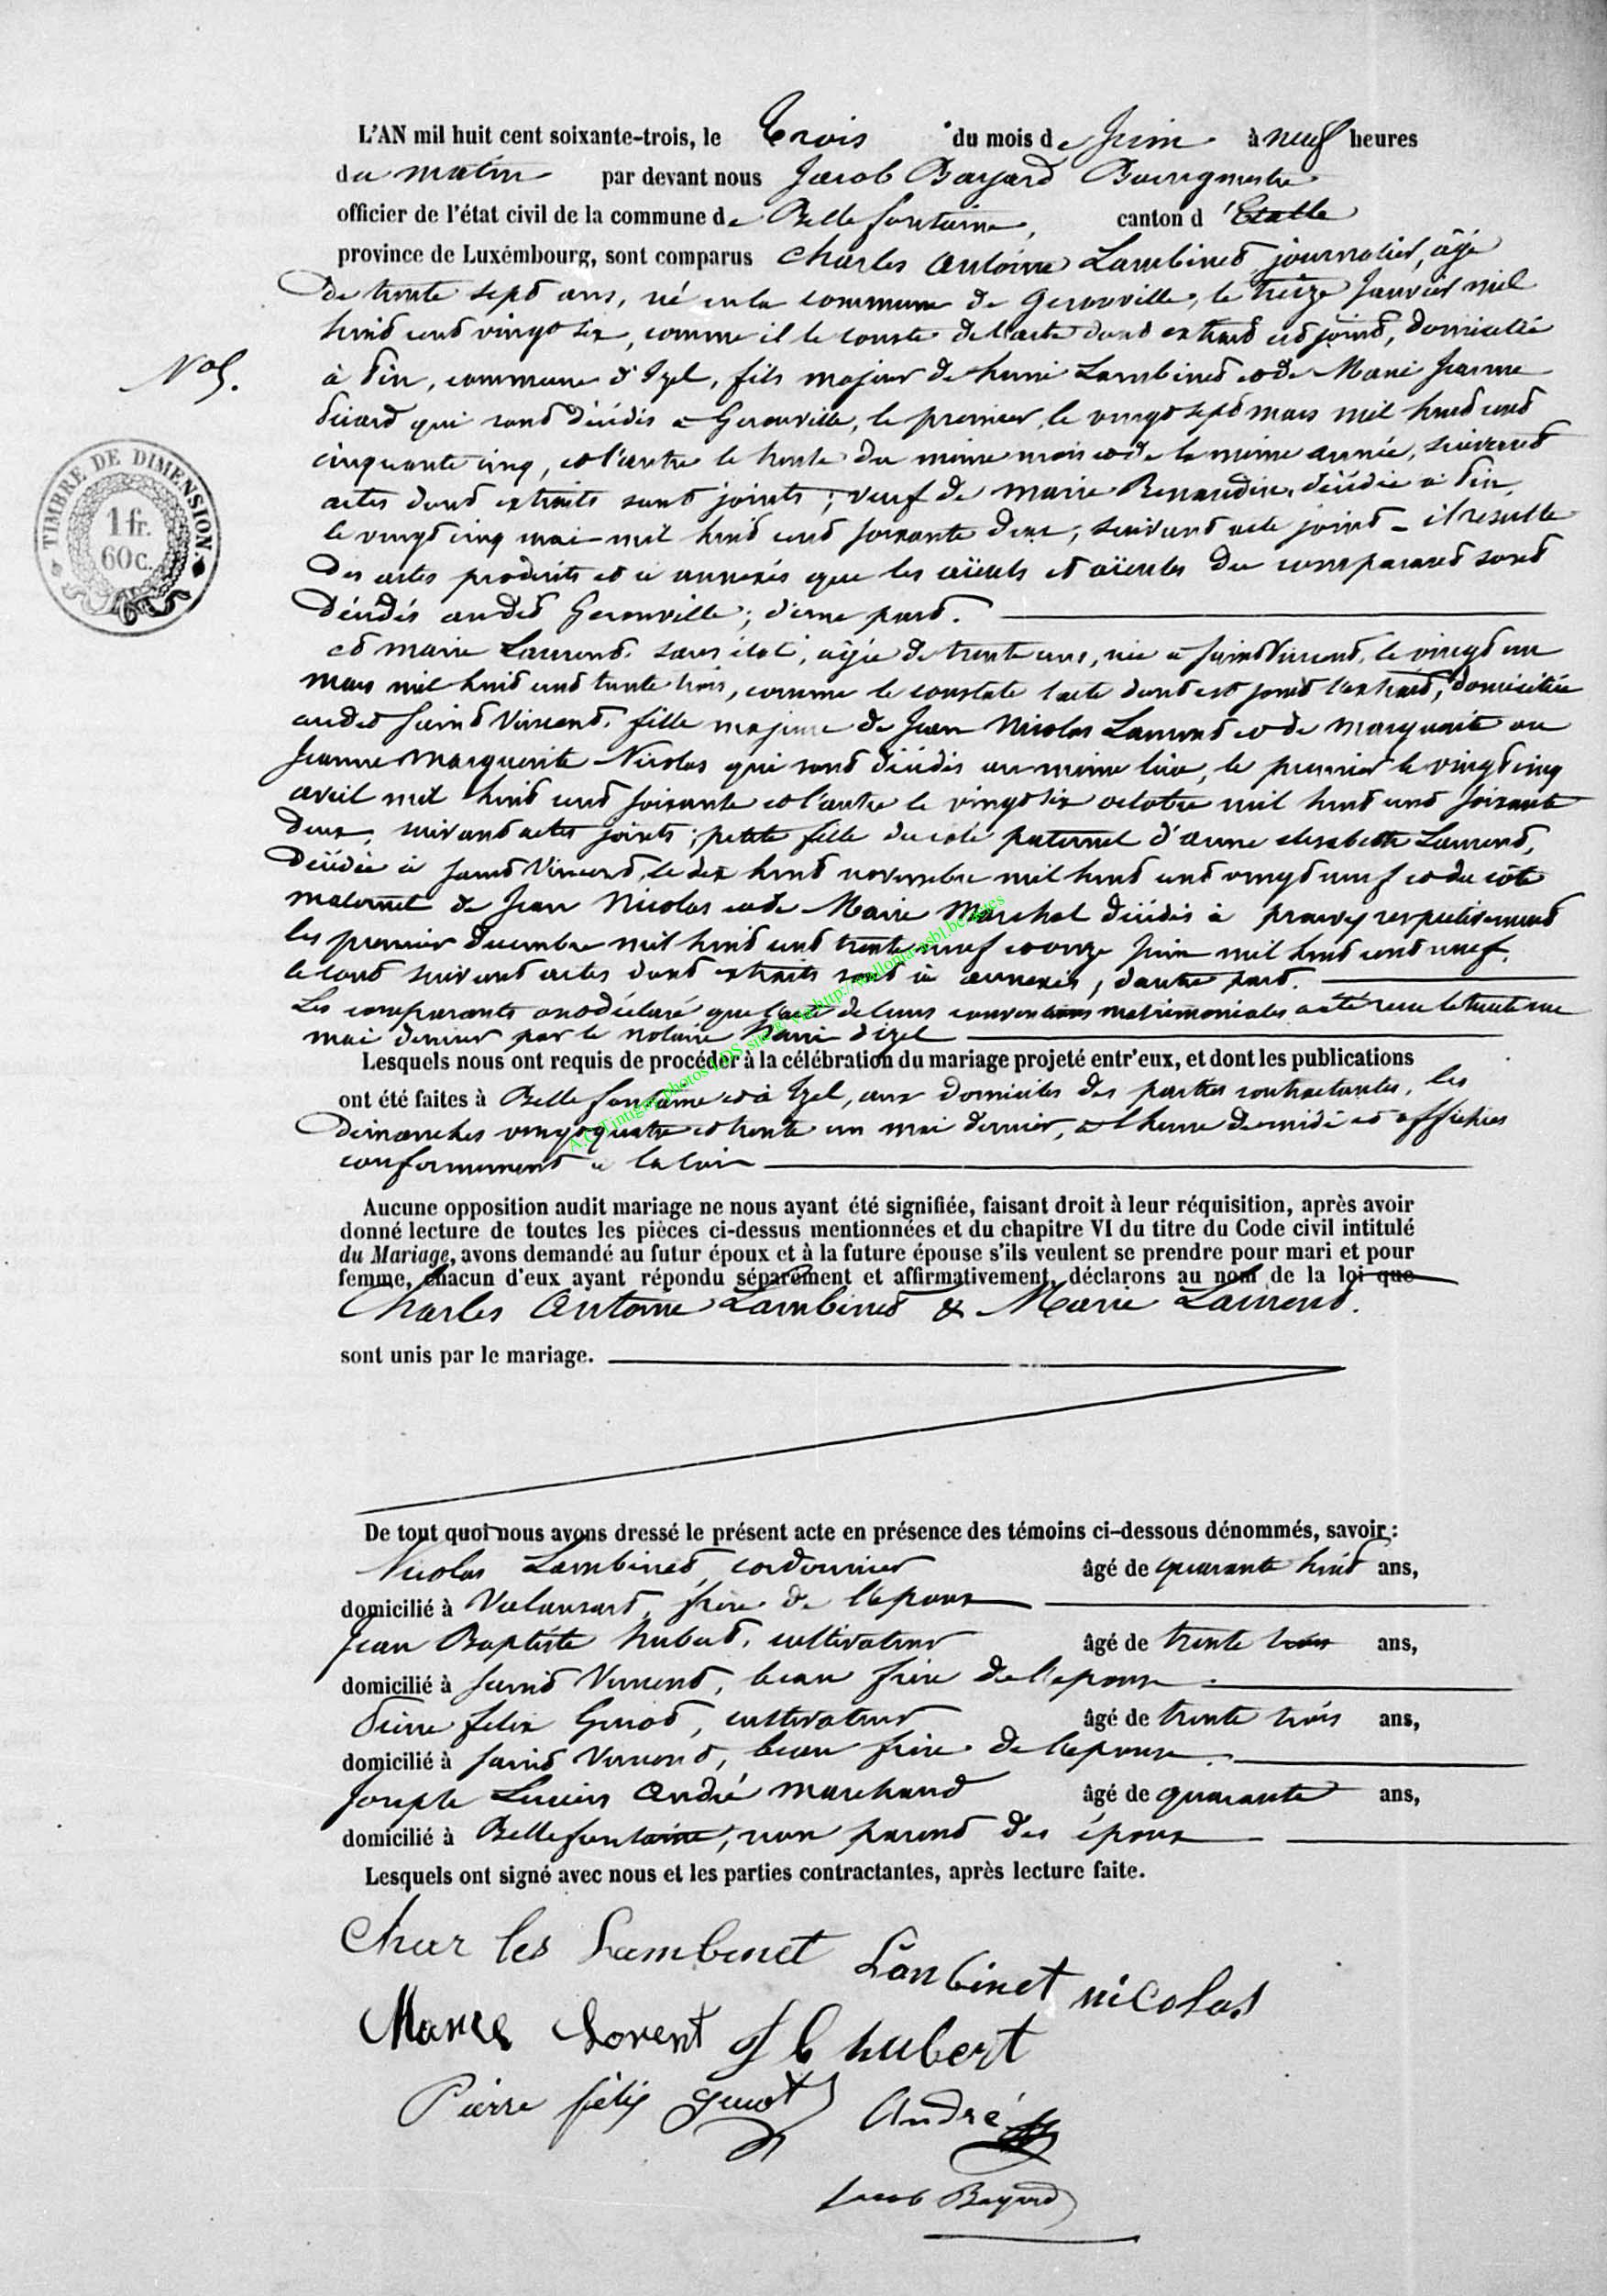 L'AN mil huit cent soixante-trois, le trois du mois de Juin à neuf heures
du matin par devant nous Jacob Bayard Bourgmestre
officier de l'état civil de la commune de Bellefontaine, canton d'Etalle
province de Luxembourg, sont comparus Charles Antoine Lambinet journalier, âgé
de trente sept ans, né en la commune de Gerouville, le treize Janvier mil
huit cent vingt six, comme il le conste de l'acte dont extrait est joint, domicilié
N° 5.
à Pin, commune d'Izel, fils majeur de henri Lambinet et de Marie Jeanne
Picard qui sont décédés à Gerouville, le premier, le vingt sept mars mil huit cent
cinquante cinq, et l'autre le trente du même mois et de la même année, suivant
actes dont extraits sont joints ; veuf de marie Renaudin, décédée à Pin,
le vingt cinq mai mil huit cent soixante deux, suivant acte joint - il resulte
des actes produits et ci annexés que les aïeuls et aïeules du comparant sont
décédés audit Gerouville ; d'une part.
TIMBRE DE DIMENSION.
1 fr.
60 c.
et marie Laurent, sans état, âgée de trente ans, née à Saint Vincent, le vingt un
mars mil huit cent trente trois, comme le constate l'acte dont est joint l'extrait, domiciliée
audit Saint Vincent, fille majeure de Jean Nicolas Laurent et de marguerite ou
Jeanne Marguerite Nicolas qui sont décédés au même lieu, le premier le vingt cinq
avril mil huit cent soixante et l'autre le vingt six octobre mil huit cent soixante
deux, suivant actes joints ; petite fille du coté paternel d'anne elisabeth Laurent,
décédée à Saint Vincent, le dix huit novembre mil huit cent vingt neuf et du côté
maternel de Jean Nicolas et de Marie Marchal décédés à prouvy respectivement
les premier decembre mil huit cent trente neuf et onze Juin mil huit cent neuf.
le tout suivant actes dont extraits sont ci annexés, d'autre part.
Les comparants ont déclaré que l'acte de leurs conventions matrimoniales a été recu le trente un
mai dernier par le notaire d'izel
Lesquels nous ont requis de procéder à la célébration du mariage projeté entr'eux, et dont les publications
ont été faites à Bellefontaine et à Izel, aux domiciles des parties contractantes, les
dimanches vingt quatre et trente un mai dernier, à l'heure de midi et affichées
conformement à la loi
Aucune opposition audit mariage ne nous ayant été signifiée, faisant droit à leur réquisition, après avoir
donné lecture de toutes les pièces ci-dessus mentionnées et du chapitre VI du titre du Code civil intitulé
du Mariage, avons demandé au futur époux et à la future épouse s'ils veulent se prendre pour mari et pour
femme, chacun d'eux ayant répondu séparément et affirmativement, déclarons au nom de la loi que
Charles Antoine Lambinet & Marie Laurent.
sont unis par le mariage.
De tout quoi nous avons dressé le présent acte en présence des témoins ci-dessous dénommés, savoir :
Nicolas Lambinet, cordonnier âgé de quarante huit ans,
domicilié à Valansart, frère de l'époux
Jean Baptiste hubert, cultivateur âgé de trente trois ans,
domicilié à Saint Vincent, beau frère de l'epouse.
Pierre felix Guiot, cultivateur âgé de trente trois ans,
domicilié à Saint Vincent, beau frère de l'epouse.
Joseph Lucien André marchand âgé de quarante ans,
domicilié à Bellefontaine, non parent des époux
Lesquels ont signé avec nous et les parties contractantes, après lecture faite.
Char les Lambinet Lanbinet nicolas
Marie Lorent J b hubert
Pierre félix guiot André
Jacob Bayard